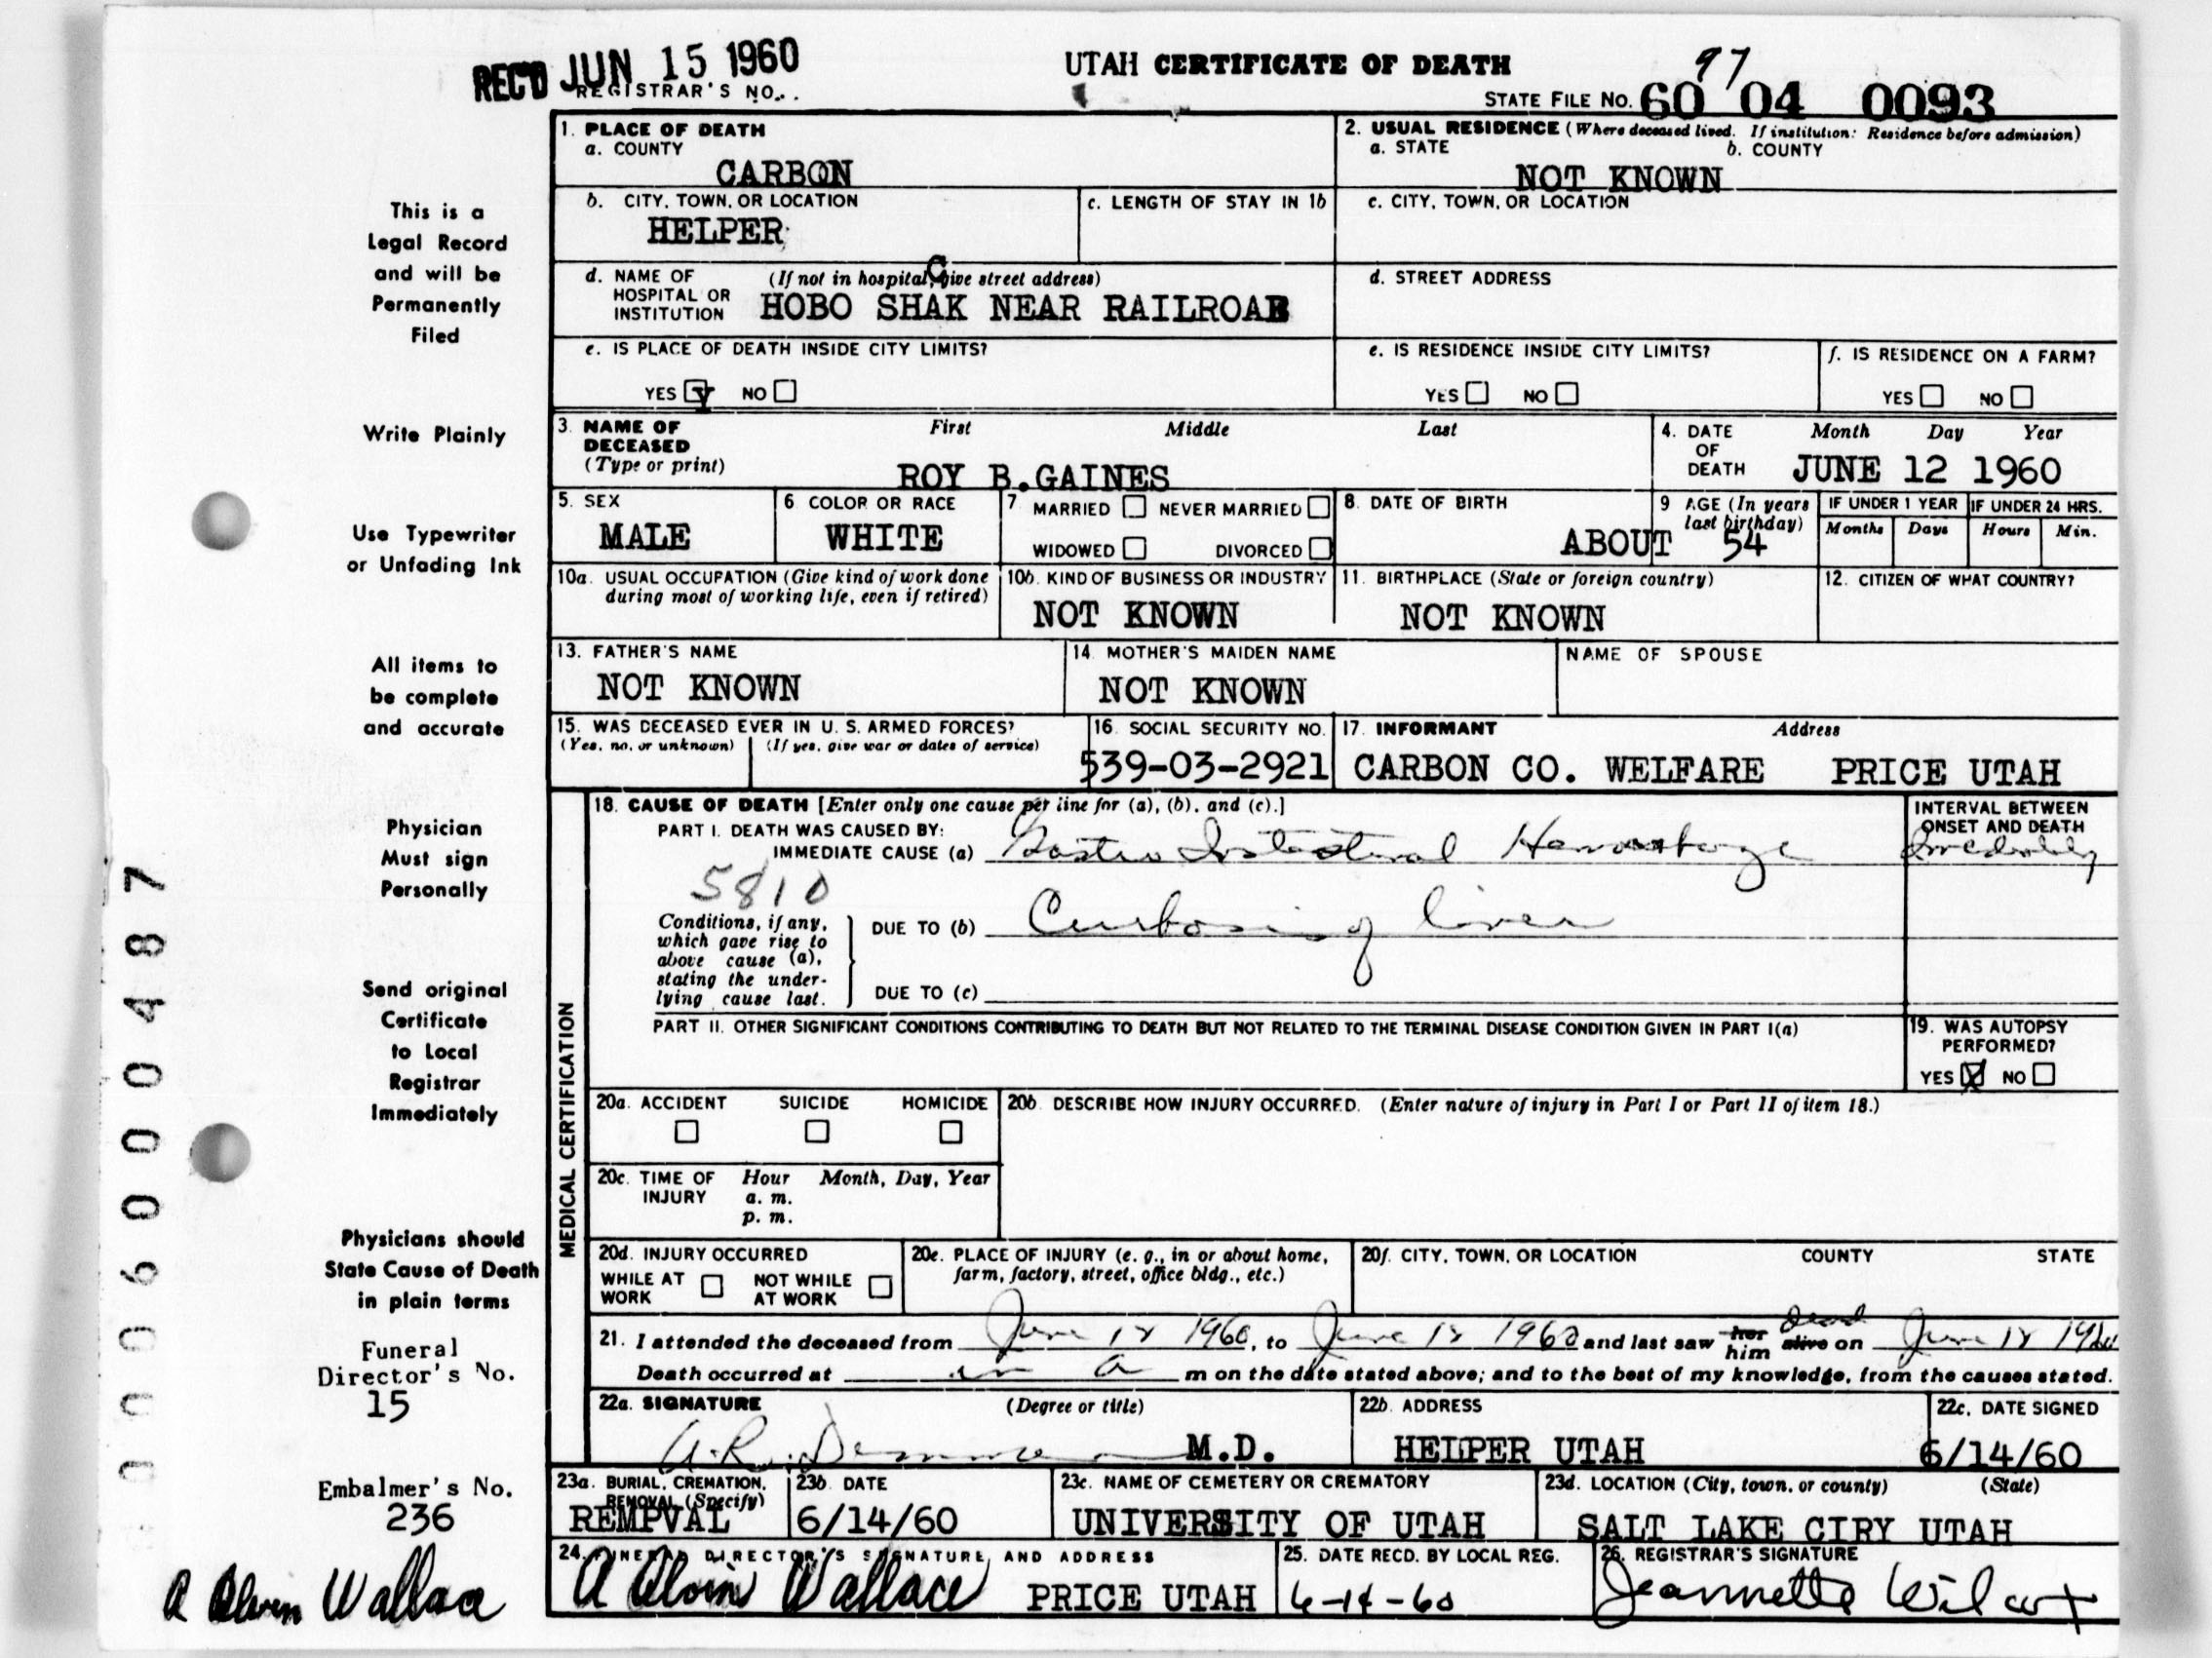 REC'D JUN 15 1960
REGISTRAR'S NO...
UTAH CERTIFICATE OF DEATH
97
STATE FILE NO. 60 04 0093
1. PLACE OF DEATH
a. COUNTY
CARBON
2. USUAL RESIDENCE (Where deceased lived. If institution: Residence before admission)
a. STATE b. COUNTY
NOT KNOWN
b. CITY, TOWN, OR LOCATION
HELPER
c. LENGTH OF STAY IN 1b
c. CITY, TOWN, OR LOCATION
d. NAME OF HOSPITAL OR INSTITUTION (If not in hospital, Give street address)
HOBO SHAK NEAR RAILROAD
d. STREET ADDRESS
e. IS PLACE OF DEATH INSIDE CITY LIMITS?
YES Y NO
e. IS RESIDENCE INSIDE CITY LIMITS?
YES NO
f. IS RESIDENCE ON A FARM?
YES NO
3. NAME OF DECEASED (Type or print)
First Middle Last
ROY B.GAINES
4. DATE OF DEATH
Month Day Year
JUNE 12 1960
5. SEX
MALE
6 COLOR OR RACE
WHITE
7 MARRIED NEVER MARRIED
WIDOWED DIVORCED
8. DATE OF BIRTH
9 AGE (In years last birthday)
ABOUT 54
IF UNDER 1 YEAR IF UNDER 24 HRS.
Months Days Hours Min.
10a. USUAL OCCUPATION (Give kind of work done during most of working life, even if retired)
10b. KIND OF BUSINESS OR INDUSTRY
NOT KNOWN
11. BIRTHPLACE (State or foreign country)
NOT KNOWN
12. CITIZEN OF WHAT COUNTRY?
13. FATHER'S NAME
NOT KNOWN
14. MOTHER'S MAIDEN NAME
NOT KNOWN
NAME OF SPOUSE
15. WAS DECEASED EVER IN U. S. ARMED FORCES?
(Yes, no, or unknown) (If yes, give war or dates of service)
16. SOCIAL SECURITY NO.
539-03-2921
17. INFORMANT Address
CARBON CO. WELFARE PRICE UTAH
MEDICAL CERTIFICATION
18. CAUSE OF DEATH [Enter only one cause per line for (a), (b), and (c).]
PART I. DEATH WAS CAUSED BY:
IMMEDIATE CAUSE (a) Gastro Intestinal Hemorrhage
INTERVAL BETWEEN ONSET AND DEATH
5810
Conditions, if any, which gave rise to above cause (a), stating the underlying cause last.
DUE TO (b) of liver
DUE TO (c)
PART II. OTHER SIGNIFICANT CONDITIONS CONTRIBUTING TO DEATH BUT NOT RELATED TO THE TERMINAL DISEASE CONDITION GIVEN IN PART I(a)
19. WAS AUTOPSY PERFORMED?
YES X NO
20a. ACCIDENT SUICIDE HOMICIDE
20b. DESCRIBE HOW INJURY OCCURRED. (Enter nature of injury in Part I or Part II of item 18.)
20c. TIME OF INJURY Hour Month, Day, Year
a. m.
p. m.
20d. INJURY OCCURRED
WHILE AT WORK NOT WHILE AT WORK
20e. PLACE OF INJURY (e. g., in or about home, farm, factory, street, office bldg., etc.)
20f. CITY, TOWN, OR LOCATION COUNTY STATE
21. I attended the deceased from June 12 1960, to June 12 1960 and last saw her him alive dead on June 12 1960
Death occurred at m on the date stated above; and to the best of my knowledge, from the causes stated.
22a. SIGNATURE (Degree or title)
A.R. M.D.
22b. ADDRESS
HELPER UTAH
22c. DATE SIGNED
6/14/60
23a. BURIAL, CREMATION, REMOVAL (Specify)
REMPVAL
23b. DATE
6/14/60
23c. NAME OF CEMETERY OR CREMATORY
UNIVERSITY OF UTAH
23d. LOCATION (City, town, or county) (State)
SALT LAKE CIRY UTAH
24. FUNERAL DIRECTOR'S SIGNATURE AND ADDRESS
A Alvin Wallace PRICE UTAH
25. DATE RECD. BY LOCAL REG.
6-14-60
26. REGISTRAR'S SIGNATURE
Jeannette Wilcox
This is a
Legal Record
and will be
Permanently
Filed
Write Plainly
Use Typewriter
or Unfading Ink
All items to
be complete
and accurate
Physician
Must sign
Personally
Send original
Certificate
to Local
Registrar
Immediately
Physicians should
State Cause of Death
in plain terms
Funeral
Director's No.
15
Embalmer's No.
236
A Alvin Wallace
0006000487